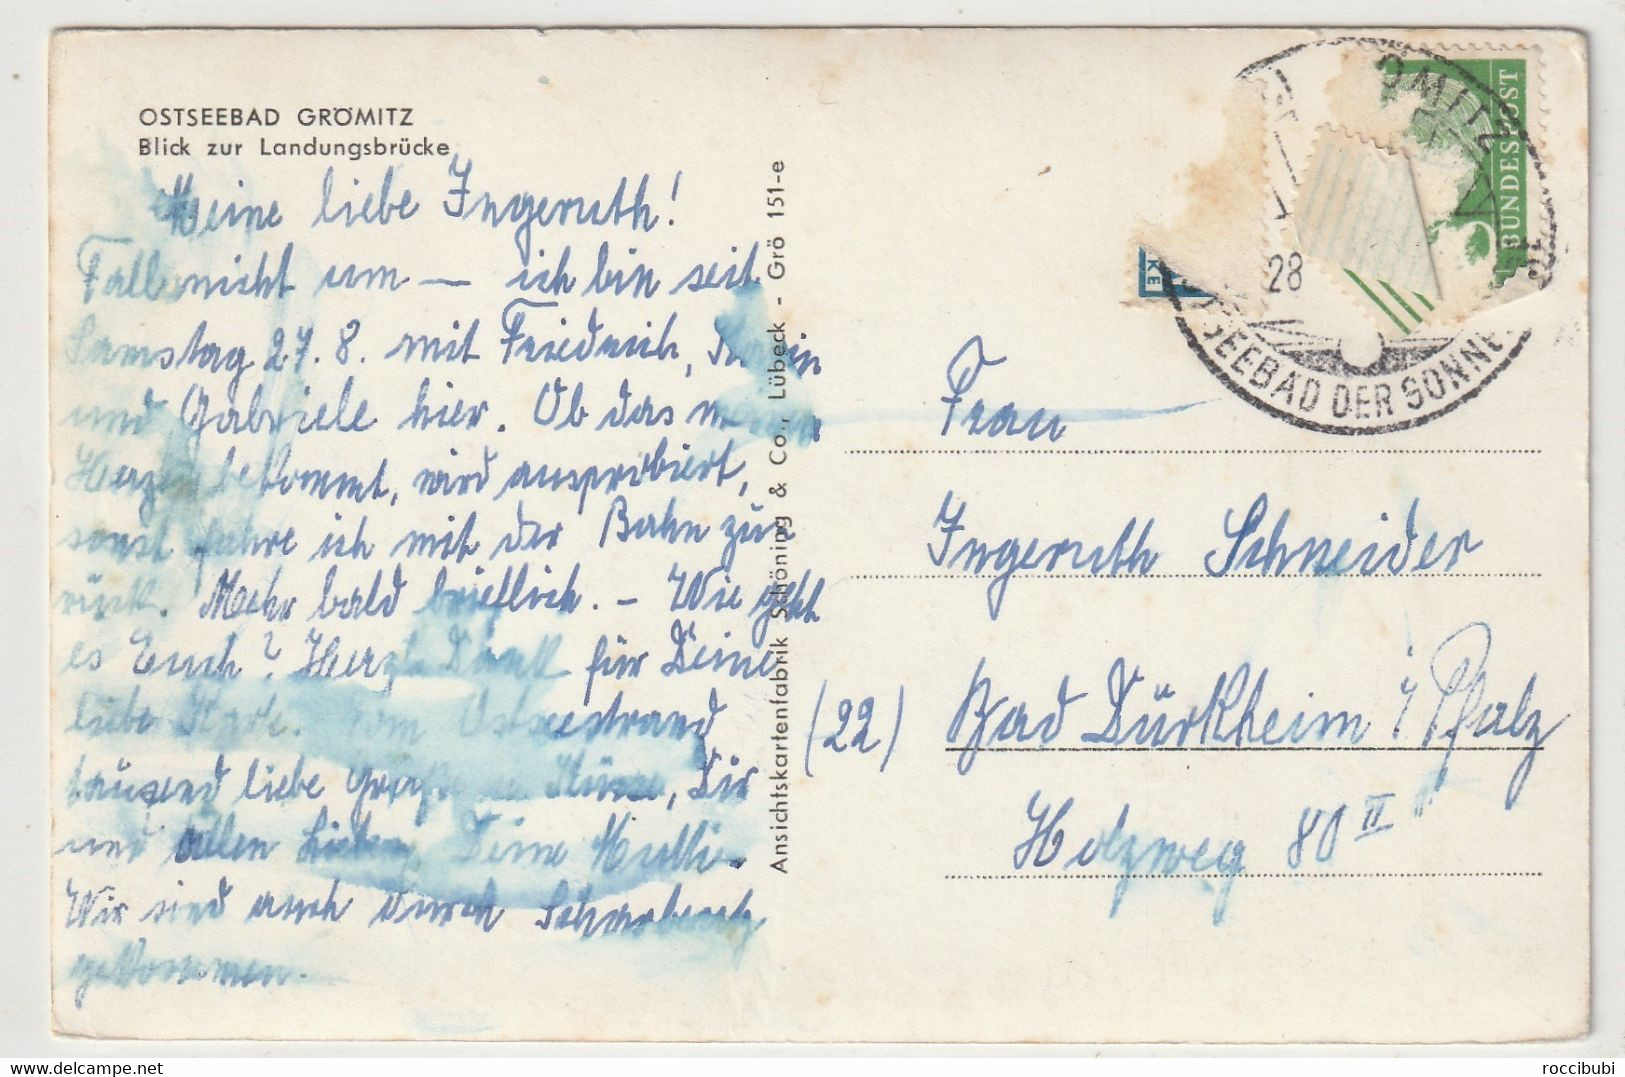 OSTSEEBAD GRÖMITZ
Blick zur Landungsbrücke
Meine liebe Ingeruth!
Falle nicht um — ich bin seit
Samstag 27. 8. mit Friedrich,
und Gabriele hier. Ob das
Herzen bekommt, wird ausprobiert,
sonst fahre ich mit der Bahn zu
rück. Mehr bald brieflich. – Wie geht
es Euch? Herzl. Dank für Deine
liebe Karte. Vom Ostseestrand
tausend liebe Grüße u. Küsse, Dir
und allen Lieben, Deine Mutti.
Wir sind auch durch Scharbeutz
gekommen.
Ansichtskartenfabrik Schöning & Co., Lübeck - Grö 151-e
OMITZ
28
SEEBAD DER SONNE
BUNDESPOST
KE
Frau
Ingeruth Schneider
(22) Bad Dürkheim / Pfalz
Holzweg 80 II
roccibubi